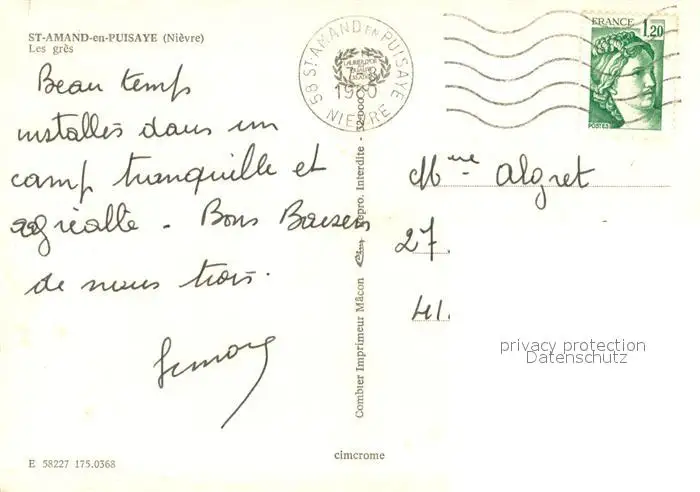 ST-AMAND-en-PUISAYE (Nièvre)
Les grès
Beau temps
installés dans un
camp tranquille et
agréable - Bons Baisers
de nous trois.
58 ST-AMAND EN PUISAYE
1980
NIEVRE
FRANCE
1,20
POSTES
Mme Algret
27.
41.
privacy protection
Datenschutz
Combier Imprimeur Mâcon
Repro. Interdite -
cimcrome
E 58227 175.0368